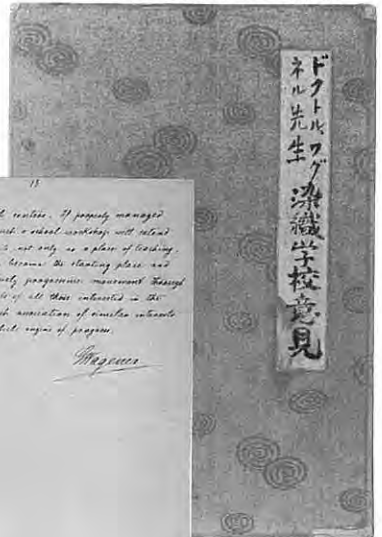 ドクトル、ワグ
ネル先生
染織学校意見
13
centre. If properly managed
such a school workshop will extend
not only as a place of teaching,
become the starting place and
progressive movement through
of all those interested in the
such association of similar interests
engine of progress.
GWagener